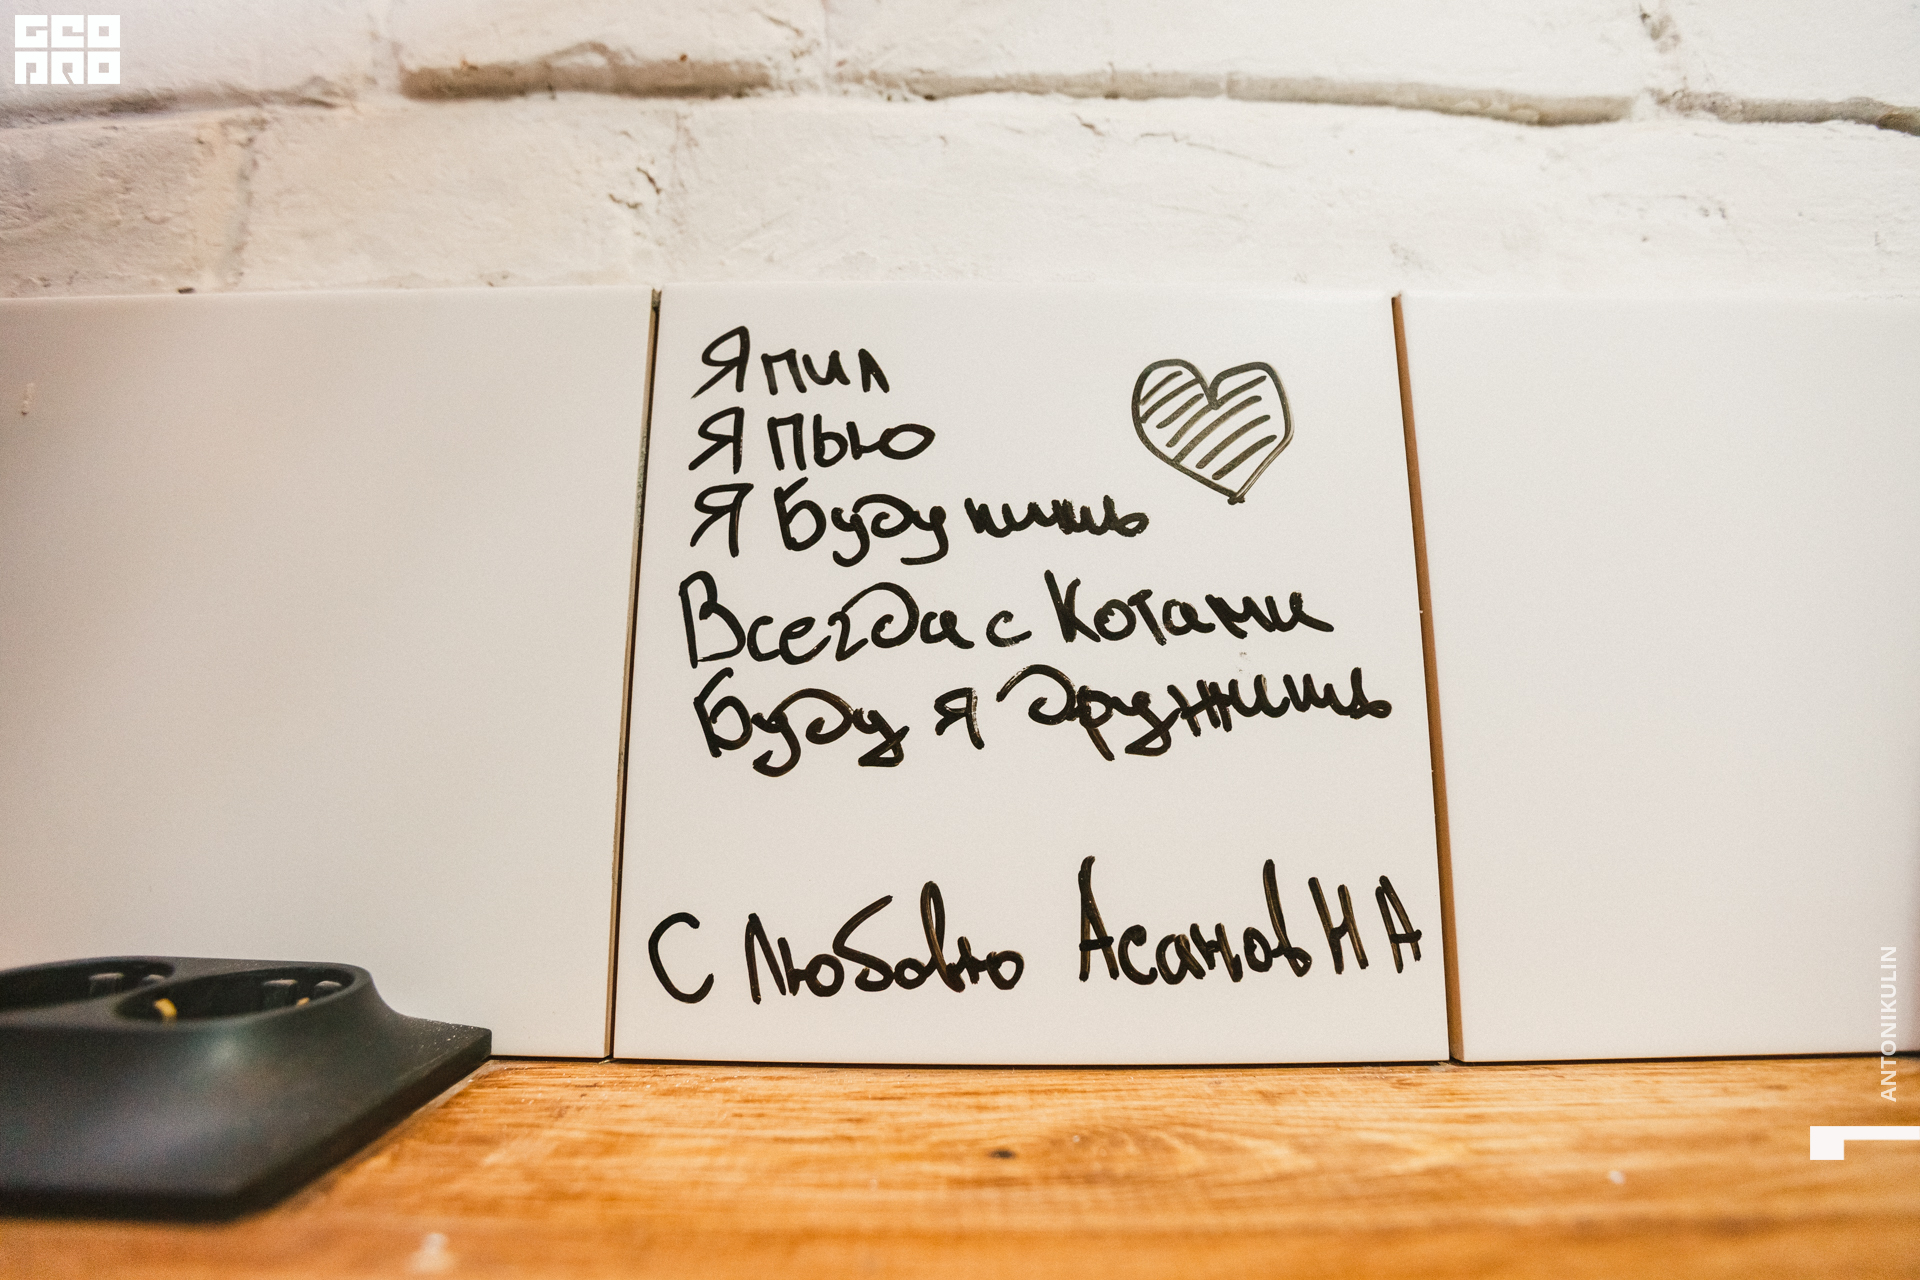 GEO
PRO
Я пил
Я пью
Я Буду пить
Всегда с Котами
Буду я дружить
С Любовью Асанов Н А
ANTONIKULIN